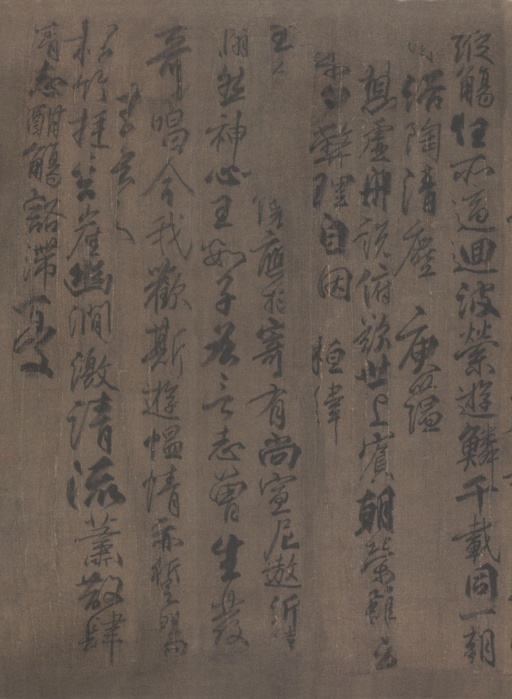 縱觴任所適迴波縈遊鱗千載同一朝
浴陶清塵 庾蘊
想虛舟說俯歎世上賓朝榮雖云
弊理自因 桓偉
主 應物寄有尚宣尼遨沂津
然神心王 子各言志曾生發
奇唱今我歡斯遊慍情亦暫暢
王玄之
松竹挺巖崖幽澗激清流蕭散肆
情志酣觴豁滯憂